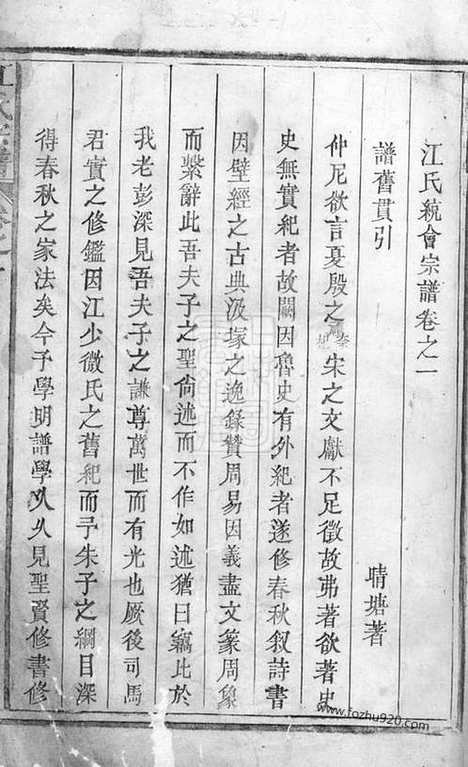 江氏統會宗譜卷之一
譜舊貫引
晴塘著
仲尼欲言夏殷之禮杞宋之文獻不足徵故弗著欲著史
史無實紀者故闕因魯史有外紀者遂修春秋叙詩書
因壁經之古典汲塚之逸錄贊周易因義畫文篆周象
而繫辭此吾夫子之聖尙述而不作如述猶曰竊比於
我老彭深見吾夫子之謙尊萬世而有光也厥後司馬
君實之修鑑因江少微氏之舊紀而子朱子之綱目深
得春秋之家法矣今予學明譜學久久見聖賢修書修
www.fozhu920.com